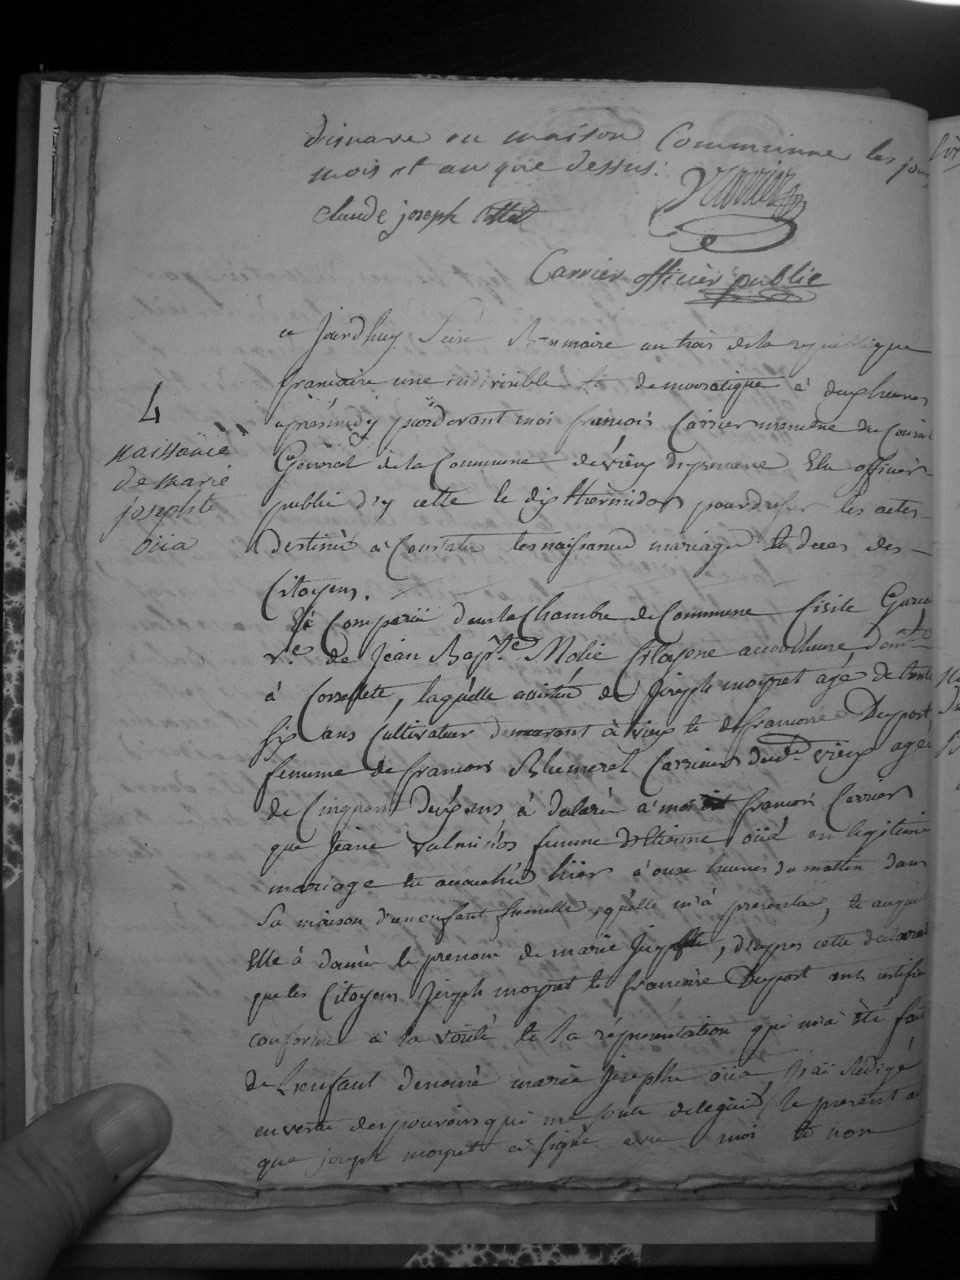 en maison Communne les jour
mois et an que dessus.
Claude joseph
Carrier
Carrier officier public
4
naissance
de marie
josephte
oüa
jourdhuy Brumaire an trois de la republique
francaise une indivisible & democratique à deux heures
apres midy pardevant moi francois Carrier membre du Conseil
General de la Commune de vieux dizenave Elu officier
public d'y celle le dix thermidor pour dresser les actes
destiné à Constater les naissances mariage & deces des
Citoyens.
à Comparüe dans la Chambre de Commune
ve de jean Bapte Molie Citoyene accoucheuse
à laquelle assistée de joseph moyret agé de trente
six ans Cultivateur demeurant à vieux & de francoise Duport
femme de francois Carrier dud. vieux agée
de Cinquante deux ans à declaré à moi francois Carrier
que jeane femme d'Etienne oüa en legitime
mariage & accouchée hier à onze heures du mattin dans
sa maison d'un enfant femelle, qu'elle m'à presenter, & auquel
Elle à donné le prenom de marie josephte, d'apres cette declaration
que les Citoyens joseph moyret & francoise Duport ont certifié
conforme à la verité & la representation qui m'à été fait
de l'enfant denomé marie josephte oüa, j'ai redigé
en vertu des pouvoirs qui me sont delegués, le present acte
que joseph moyret à signé avec moi & non